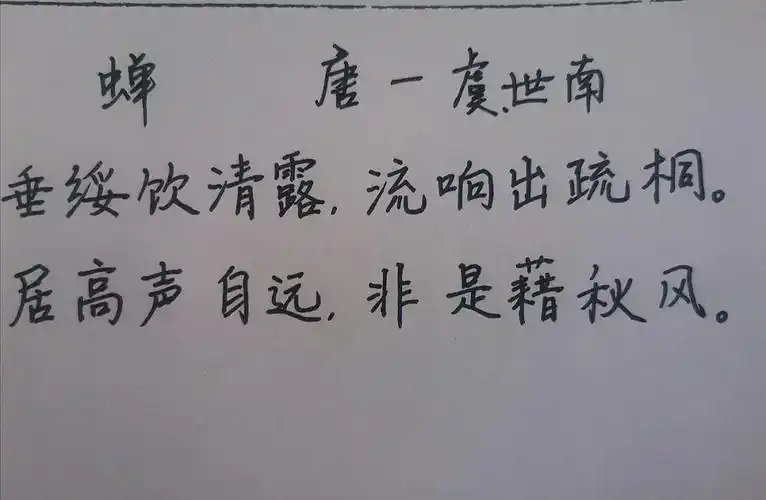 蝉 唐一虞世南
垂绥饮清露,流响出疏桐。
居高声自远,非是藉秋风。